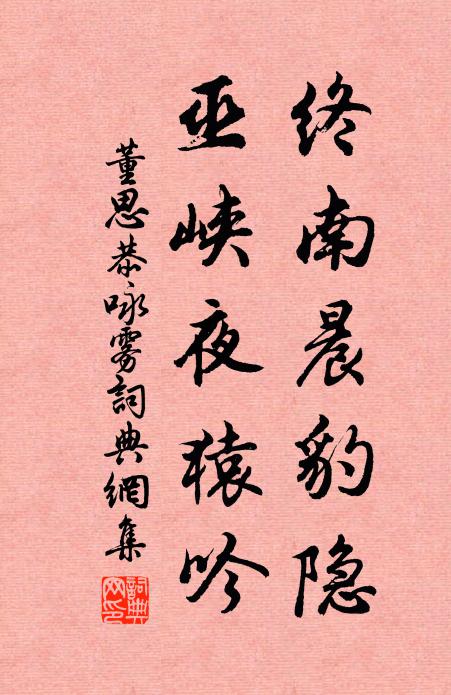 终南晨豹隐
巫峡夜猿吟
董思恭咏雾詞典網集
詞典网印